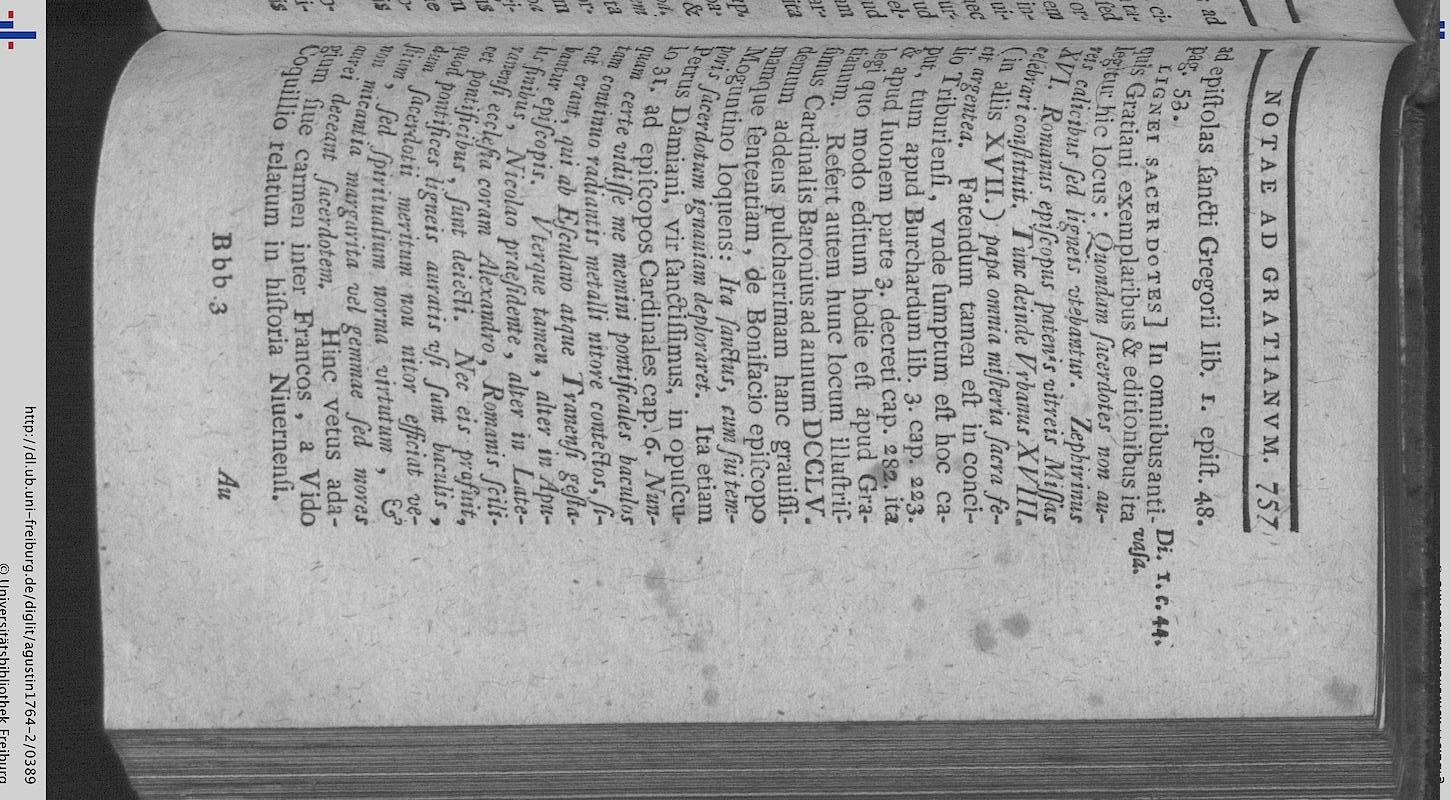 NOTAE AD GRATIANVM. 757
ad epiſtolas ſancti Gregorii lib. 1. epiſt. 48.
pag. 53.
LIGNEI SACERDOTES] In omnibus anti-
quis Gratiani exemplaribus & editionibus ita
legitur hic locus: Quondam ſacerdotes non au-
reis calicibus ſed ligneis vtebantur. Zephirinus
XVI. Romanus epiſcopus patenis vitreis Miſſas
celebrari conſtituit. Tunc deinde Vrbanus XVIII.
(in aliis XVII.) papa omnia miſteria ſacra fe-
cit argentea. Fatendum tamen eſt in conci-
lio Triburienſi, vnde ſumptum eſt hoc ca-
put, tum apud Burchardum lib. 3. cap. 223.
& apud Iuonem parte 3. decreti cap. 282. ita
legi quo modo editum hodie eſt apud Gra-
tianum. Refert autem hunc locum illuſtriſ-
ſimus Cardinalis Baronius ad annum DCCLV.
demum addens pulcherrimam hanc grauiſſi-
mamque ſententiam, de Bonifacio epiſcopo
Moguntino loquens: Ita ſanctus, cum ſui tem-
poris ſacerdotum ignauiam deploraret. Ita etiam
Petrus Damiani, vir ſanctiſſimus, in opuſcu-
lo 31. ad epiſcopos Cardinales cap. 6. Nun-
quam certe vidiſſe me memini pontificales baculos
tam continuo radiantis metalli nitore contectos, ſi-
cut erant, qui ab Eſculano atque Tranenſi geſta-
buntur epiſcopis. Vterque tamen, alter in Apu-
lis finibus, Nicolao praeſidente, alter in Late-
ranenſi eccleſia coram Alexandro, Romanis ſcili-
cet pontificibus, ſunt deiecti. Nec eis profuit,
quod pontifices ligneis auratis vſi ſunt baculis,
dum ſacerdotii meritum non nitor efficiat ve-
ſtium, ſed ſpiritualium norma virtutum, &
non micantia margarita vel gemmae ſed mores
aurei deceant ſacerdotem. Hinc vetus ada-
gium ſiue carmen inter Francos, a Vido
Coquillio relatum in hiſtoria Niuernenſi.
Di. 1. c. 44.
vaſa.
Bbb 3 Au
http://dl.ub.uni-freiburg.de/diglit/agustin1764-2/0389
© Universitätsbibliothek Freiburg